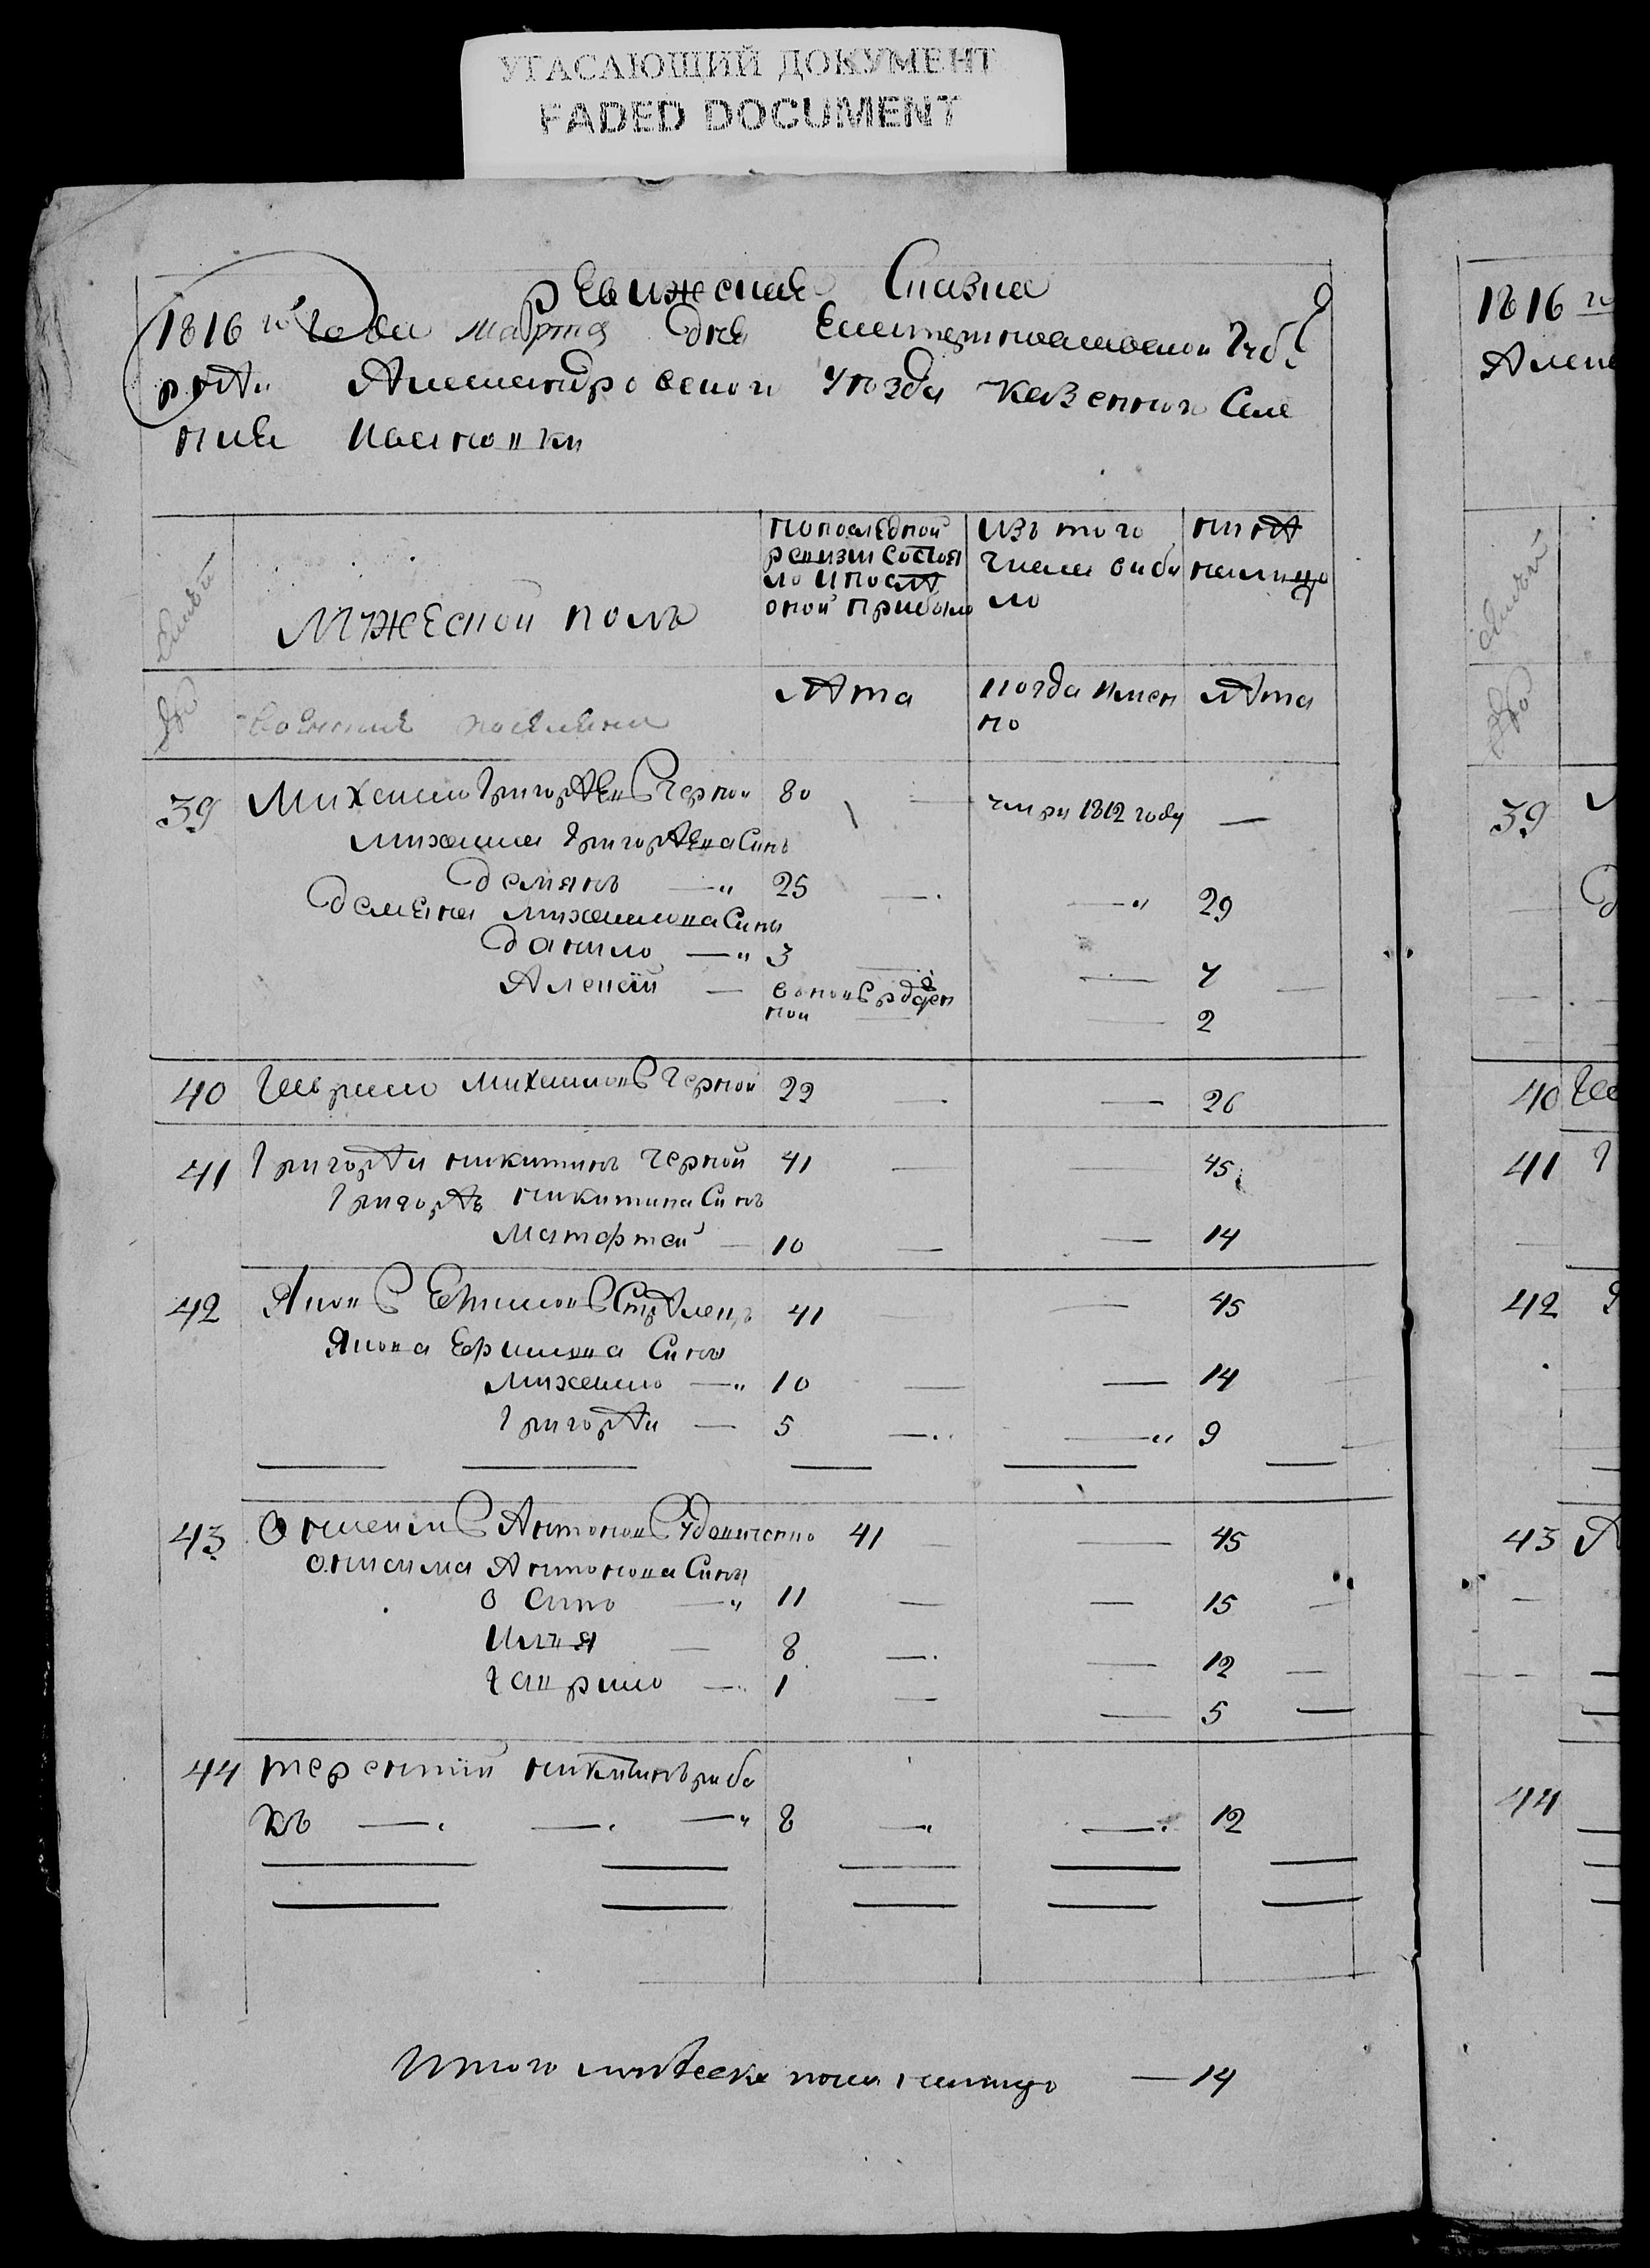 УГАСАЮЩИЙ ДОКУМЕНТ
FADED DOCUMENT
ревижская Сказка
1816 го года марта дня Екатеринославской Губе
рнѣи Александровского уезда казенного Селе
ния Ивановки
Мужеской полъ
попоследной ревизии состоя ло ипослѣ оной прибыло
изъ того числа выбы ло
нинѣ налицо
Лѣта
когда имен но
Лѣта
военние поселяни
39 Михаило Григорѣевъ Чорной 80 — умре 1812 году —
михаила Григорѣева Синъ
демянъ — 25 — — 29
демяна михаилова Сини
данило — 3 — 7
Алексій — вновъ рожден ной — 2
40 Гаврило михаиловъ Чорной 22 — — 26
41 Григорѣи никитинъ Черной 41 — — 45
Григорѣя никитина Синъ
матофтей — 10 — — 14
42 Яковъ Ермиловъ Стрѣлецъ 41 — — 45
Якова Ермилова Сини
михаило — 10 — — 14
Григорѣи — 5 — — 9
43 Онисимъ Антоновъ Удовиченко 41 — — 45
онисима Антонова Сини
осипо — 11 — — 15
Илья — 8 — — 12
гаврило — 1 — — 5
44 терентий никитинъ риба
къ — — — 8 — — 12
Итого мужеска пола налицо — 14
1816 го
Алекс
39
40 Га
41 Г
42 Я
43
44